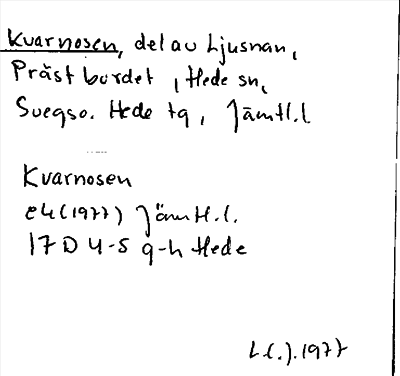 Kvarnosen, del av Ljusnan,
Prästbordet, Hede sn,
Svegso. Hede tg, Jämtl.l
Kvarnosen
ek (1977) Jämtl.l.
17 D 4-5 g-h Hede
1977